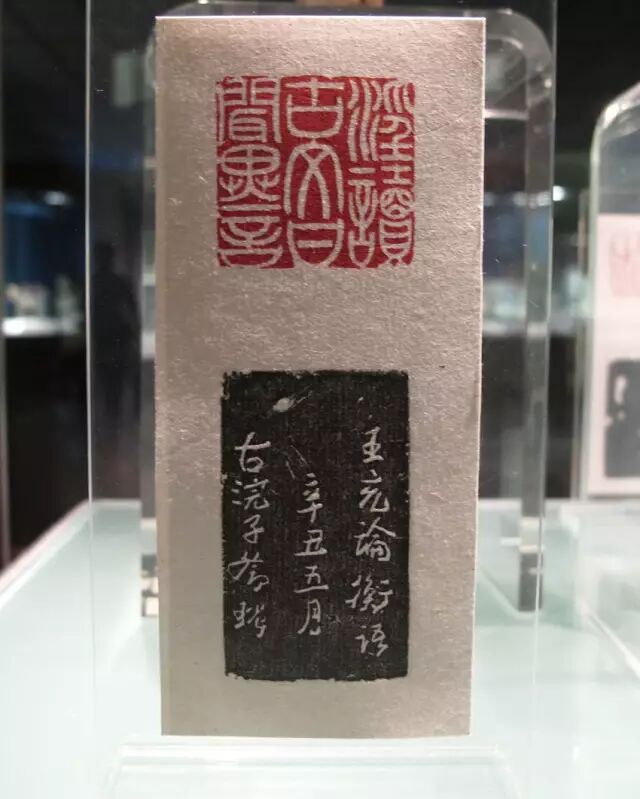 淫讀
古文甘
聞異言
王充論衡語
辛丑五月
古浣子